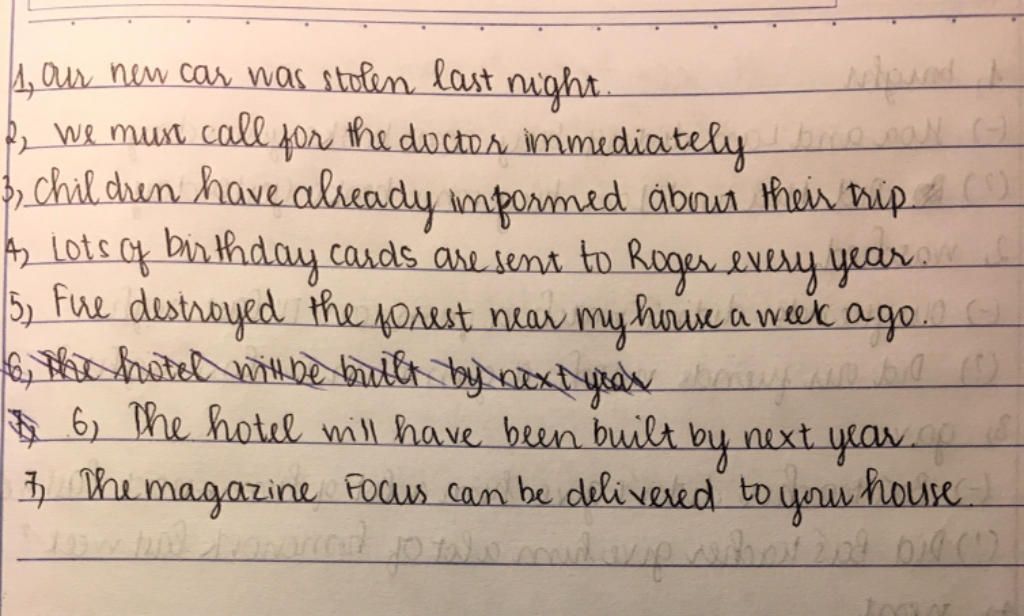 1, Our new car was stolen last night.
2, we must call for the doctor immediately
3, Children have already imformed about their trip.
4, Lots of birthday cards are sent to Roger every year.
5, Fire destroyed the forest near my house a week ago.
6, The hotel will be built by next year
7, 6) The hotel will have been built by next year.
7, The magazine Focus can be delivered to your house.